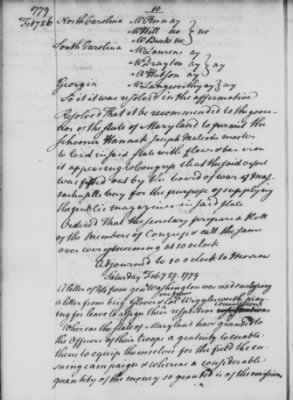 1779
Feby 26
10
North Carolina Mr Penn ay
Mr Hill no } no
Mr Burke no
South Carolina Mr Laurens ay
Mr Drayton ay } ay
Mr Hutson ay
Georgia Mr Langworthy ay } ay
So it was resolved in the affirmative
Resolved That it be recommended to the gover-
nor of the state of Maryland to permit the
schooner Hannah, Joseph Malcom master
to load in said state with flour & bar iron
it appearing to Congress that the said vessel
was fitted out by the board of war of Mas-
sachusetts bay for the purpose of supplying
the public magazines in said state
Ordered That the secretary prepare a Roll
of the Members of Congress & call the same
over every morning at 10 oClock
adjourned to 10 oClock to Morrow
Saturday Feby 27. 1779
A letter of 24 from genl Washington was read enclosing
a letter from brig Glover & Col Wigglesworth pray-
ing for leave to resign their respective commissions
Whereas the State of Maryland have granted to
the Officers of their troops a gratuity to enable
them to equip themselves for the field the en-
suing campaign & whereas a considerable
quantity of the money so granted is of the emissions